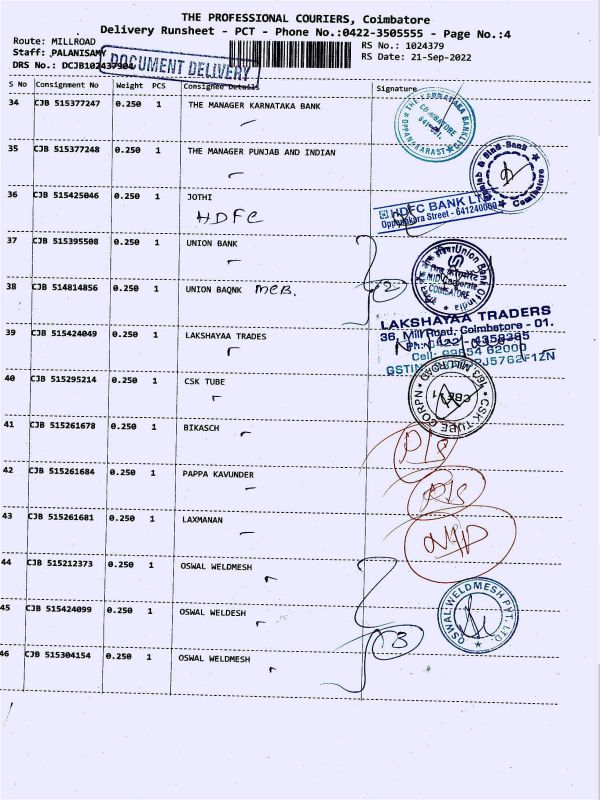 THE PROFESSIONAL COURIERS, Coimbatore
Delivery Runsheet - PCT - Phone No.:0422-3505555 - Page No.:4
Route: MILLROAD
RS No.: 1024379
Staff: PALANISAMY
RS Date: 21-Sep-2022
DRS No.: DCJB102437904
DOCUMENT DELIVERY
S No Consignment No Weight PCS Consignee Details Signature
34 CJB 515377247 0.250 1 THE MANAGER KARNATAKA BANK
35 CJB 515377248 0.250 1 THE MANAGER PUNJAB AND INDIAN
36 CJB 515425046 0.250 1 JOTHI
HDFC
HDFC BANK LTD
Oppanakara Street - 641240009
37 CJB 515395508 0.250 1 UNION BANK
38 CJB 514814856 0.250 1 UNION BAQNK MCB.
2
Union Bank Of India
COIMBATORE
39 CJB 515424049 0.250 1 LAKSHAYAA TRADES
LAKSHAYAA TRADERS
36, Mill Road, Coimbatore - 01.
40 CJB 515295214 0.250 1 CSK TUBE
CSK TUBE CORPN
163 MILL ROAD
CBE-1
41 CJB 515261678 0.250 1 BIKASCH
42 CJB 515261684 0.250 1 PAPPA KAVUNDER
43 CJB 515261681 0.250 1 LAXMANAN
44 CJB 515212373 0.250 1 OSWAL WELDMESH
45 CJB 515424099 0.250 1 OSWAL WELDESH
OSWAL WELDMESH PVT. LTD.
3
46 CJB 515304154 0.250 1 OSWAL WELDMESH